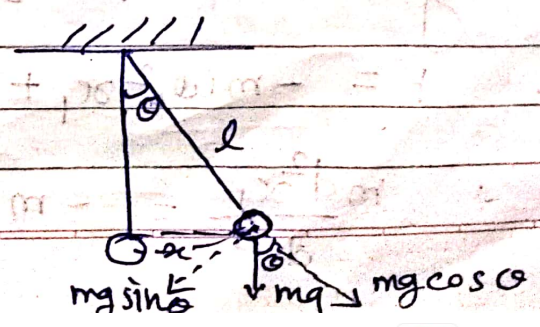 θ
l
x
θ
mg sinθ
mg
mg cos θ